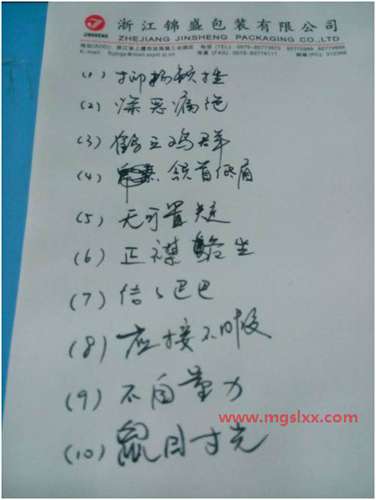 浙江锦盛包装有限公司
JINSHENG
ZHEJIANG JINSHENG PACKAGING CO.,LTD
(1) 抑扬顿挫
(2) 深恶痛绝
(3) 鹤立鸡群
(4) 颔首低眉
(5) 无可置疑
(6) 正襟危坐
(7) 结结巴巴
(8) 应接不暇
(9) 不自量力
www.mgslxx.com
(10) 鼠目寸光